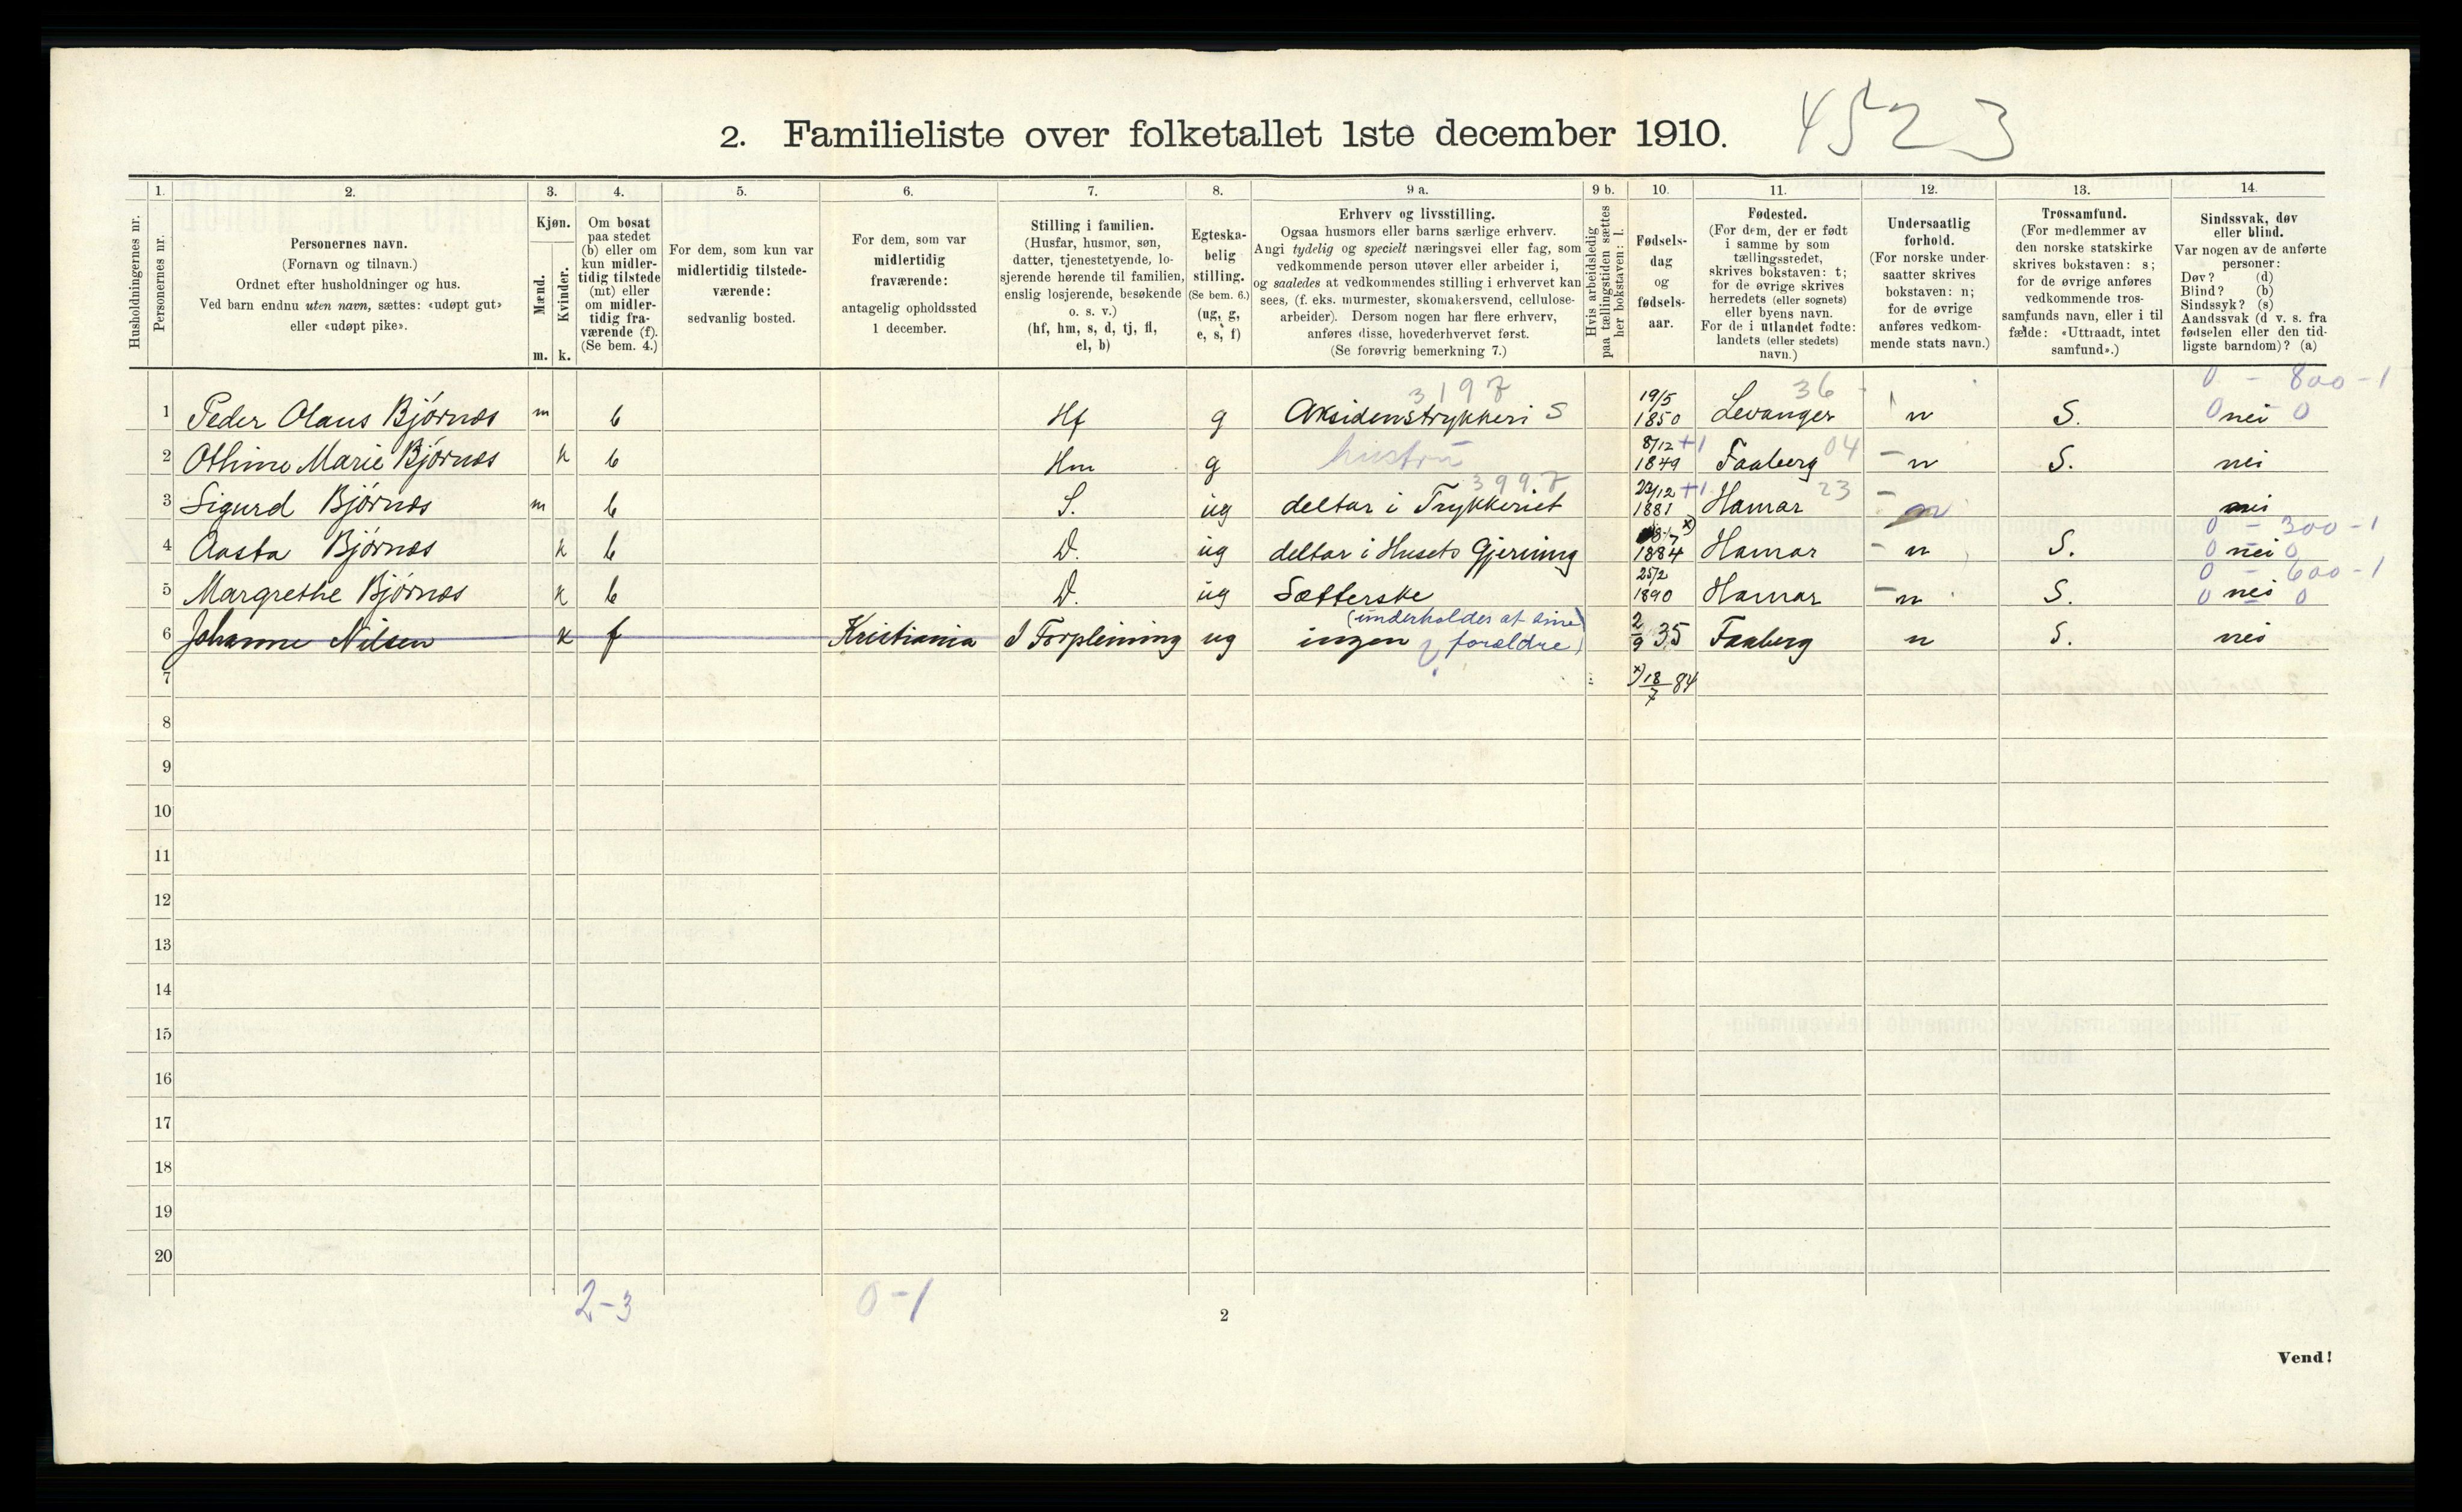 4523
2. Familieliste over folketallet 1ste december 1910.
1. 2. 3. 4. 5. 6. 7. 8. 9 a. 9 b. 10. 11. 12. 13. 14.
Husholdningernes nr.
Personernes nr.
Personernes navn.
(Fornavn og tilnavn.)
Ordnet efter husholdninger og hus.
Ved barn endnu uten navn, sættes: «udøpt gut»
eller «udøpt pike».
Kjøn.
Mænd.
Kvinder.
m. k.
Om bosat
paa stedet
(b) eller om
kun midler-
tidig tilstede
(mt) eller
om midler-
tidig fra-
værende (f).
(Se bem. 4.)
For dem, som kun var
midlertidig tilstede-
værende:
sedvanlig bosted.
For dem, som var
midlertidig
fraværende:
antagelig opholdssted
1 december.
Stilling i familien.
(Husfar, husmor, søn,
datter, tjenestetyende, lo-
sjerende hørende til familien,
enslig losjerende, besøkende
o. s. v.)
(hf, hm, s, d, tj, fl,
el, b)
Egteska-
belig
stilling.
(Se bem. 6.)
(ug, g,
e, s, f)
Erhverv og livsstilling.
Ogsaa husmors eller barns særlige erhverv.
Angi tydelig og specielt næringsvei eller fag, som
vedkommende person utøver eller arbeider i,
og saaledes at vedkommendes stilling i erhvervet kan
sees, (f. eks. murmester, skomakersvend, cellulose-
arbeider). Dersom nogen har flere erhverv,
anføres disse, hovederhvervet først.
(Se forøvrig bemerkning 7.)
Hvis arbeidsledig
paa tællingstiden sættes
her bokstaven: l.
Fødsels-
dag
og
fødsels-
aar.
Fødested.
(For dem, der er født
i samme by som
tællingsstedet,
skrives bokstaven: t;
for de øvrige skrives
herredets (eller sognets)
eller byens navn.
For de i utlandet fødte:
landets (eller stedets)
navn.)
Undersaatlig
forhold.
(For norske under-
saatter skrives
bokstaven: n;
for de øvrige
anføres vedkom-
mende stats navn.)
Trossamfund.
(For medlemmer av
den norske statskirke
skrives bokstaven: s;
for de øvrige anføres
vedkommende tros-
samfunds navn, eller i til
fælde: «Uttraadt, intet
samfund».)
Sindssvak, døv
eller blind.
Var nogen av de anførte
personer:
Døv? (d)
Blind? (b)
Sindssyk? (s)
Aandssvak (d v. s. fra
fødselen eller den tid-
ligste barndom)? (a)
3197 36 0 - 800-1
1 Peder Olaus Bjørnæs m b Hf g Aksidenstrykkeri S 19/5 1850 Levanger n S. 0 nei 0
2 Othine Marie Bjørnæs k b Hm g hustru 8/12 +1 1849 Faaberg 04 - n S. nei
3997
3 Sigurd Bjørnæs m b S. ug deltar i Trykkeriet 23/12 +1 1881 Hamar 23 - n nei
0 - 300-1
4 Aasta Bjørnæs k b D. ug deltar i Husets Gjerning x) 1884 Hamar - n S. 0 nei 0
0 - 600-1
5 Margrethe Bjørnæs k b D. ug Sætterske 25/2 1890 Hamar - n S. 0 nei 0
(underholdes af sine
6 Johanne Nilsen k f Kristiania I Forpleining ug ingen foræeldre) 2/9 35 Faaberg n S. nei
7 x) 18/7 84
8
9
10
11
12
13
14
15
16
17
18
19
20
2-3 0-1
2
Vend!